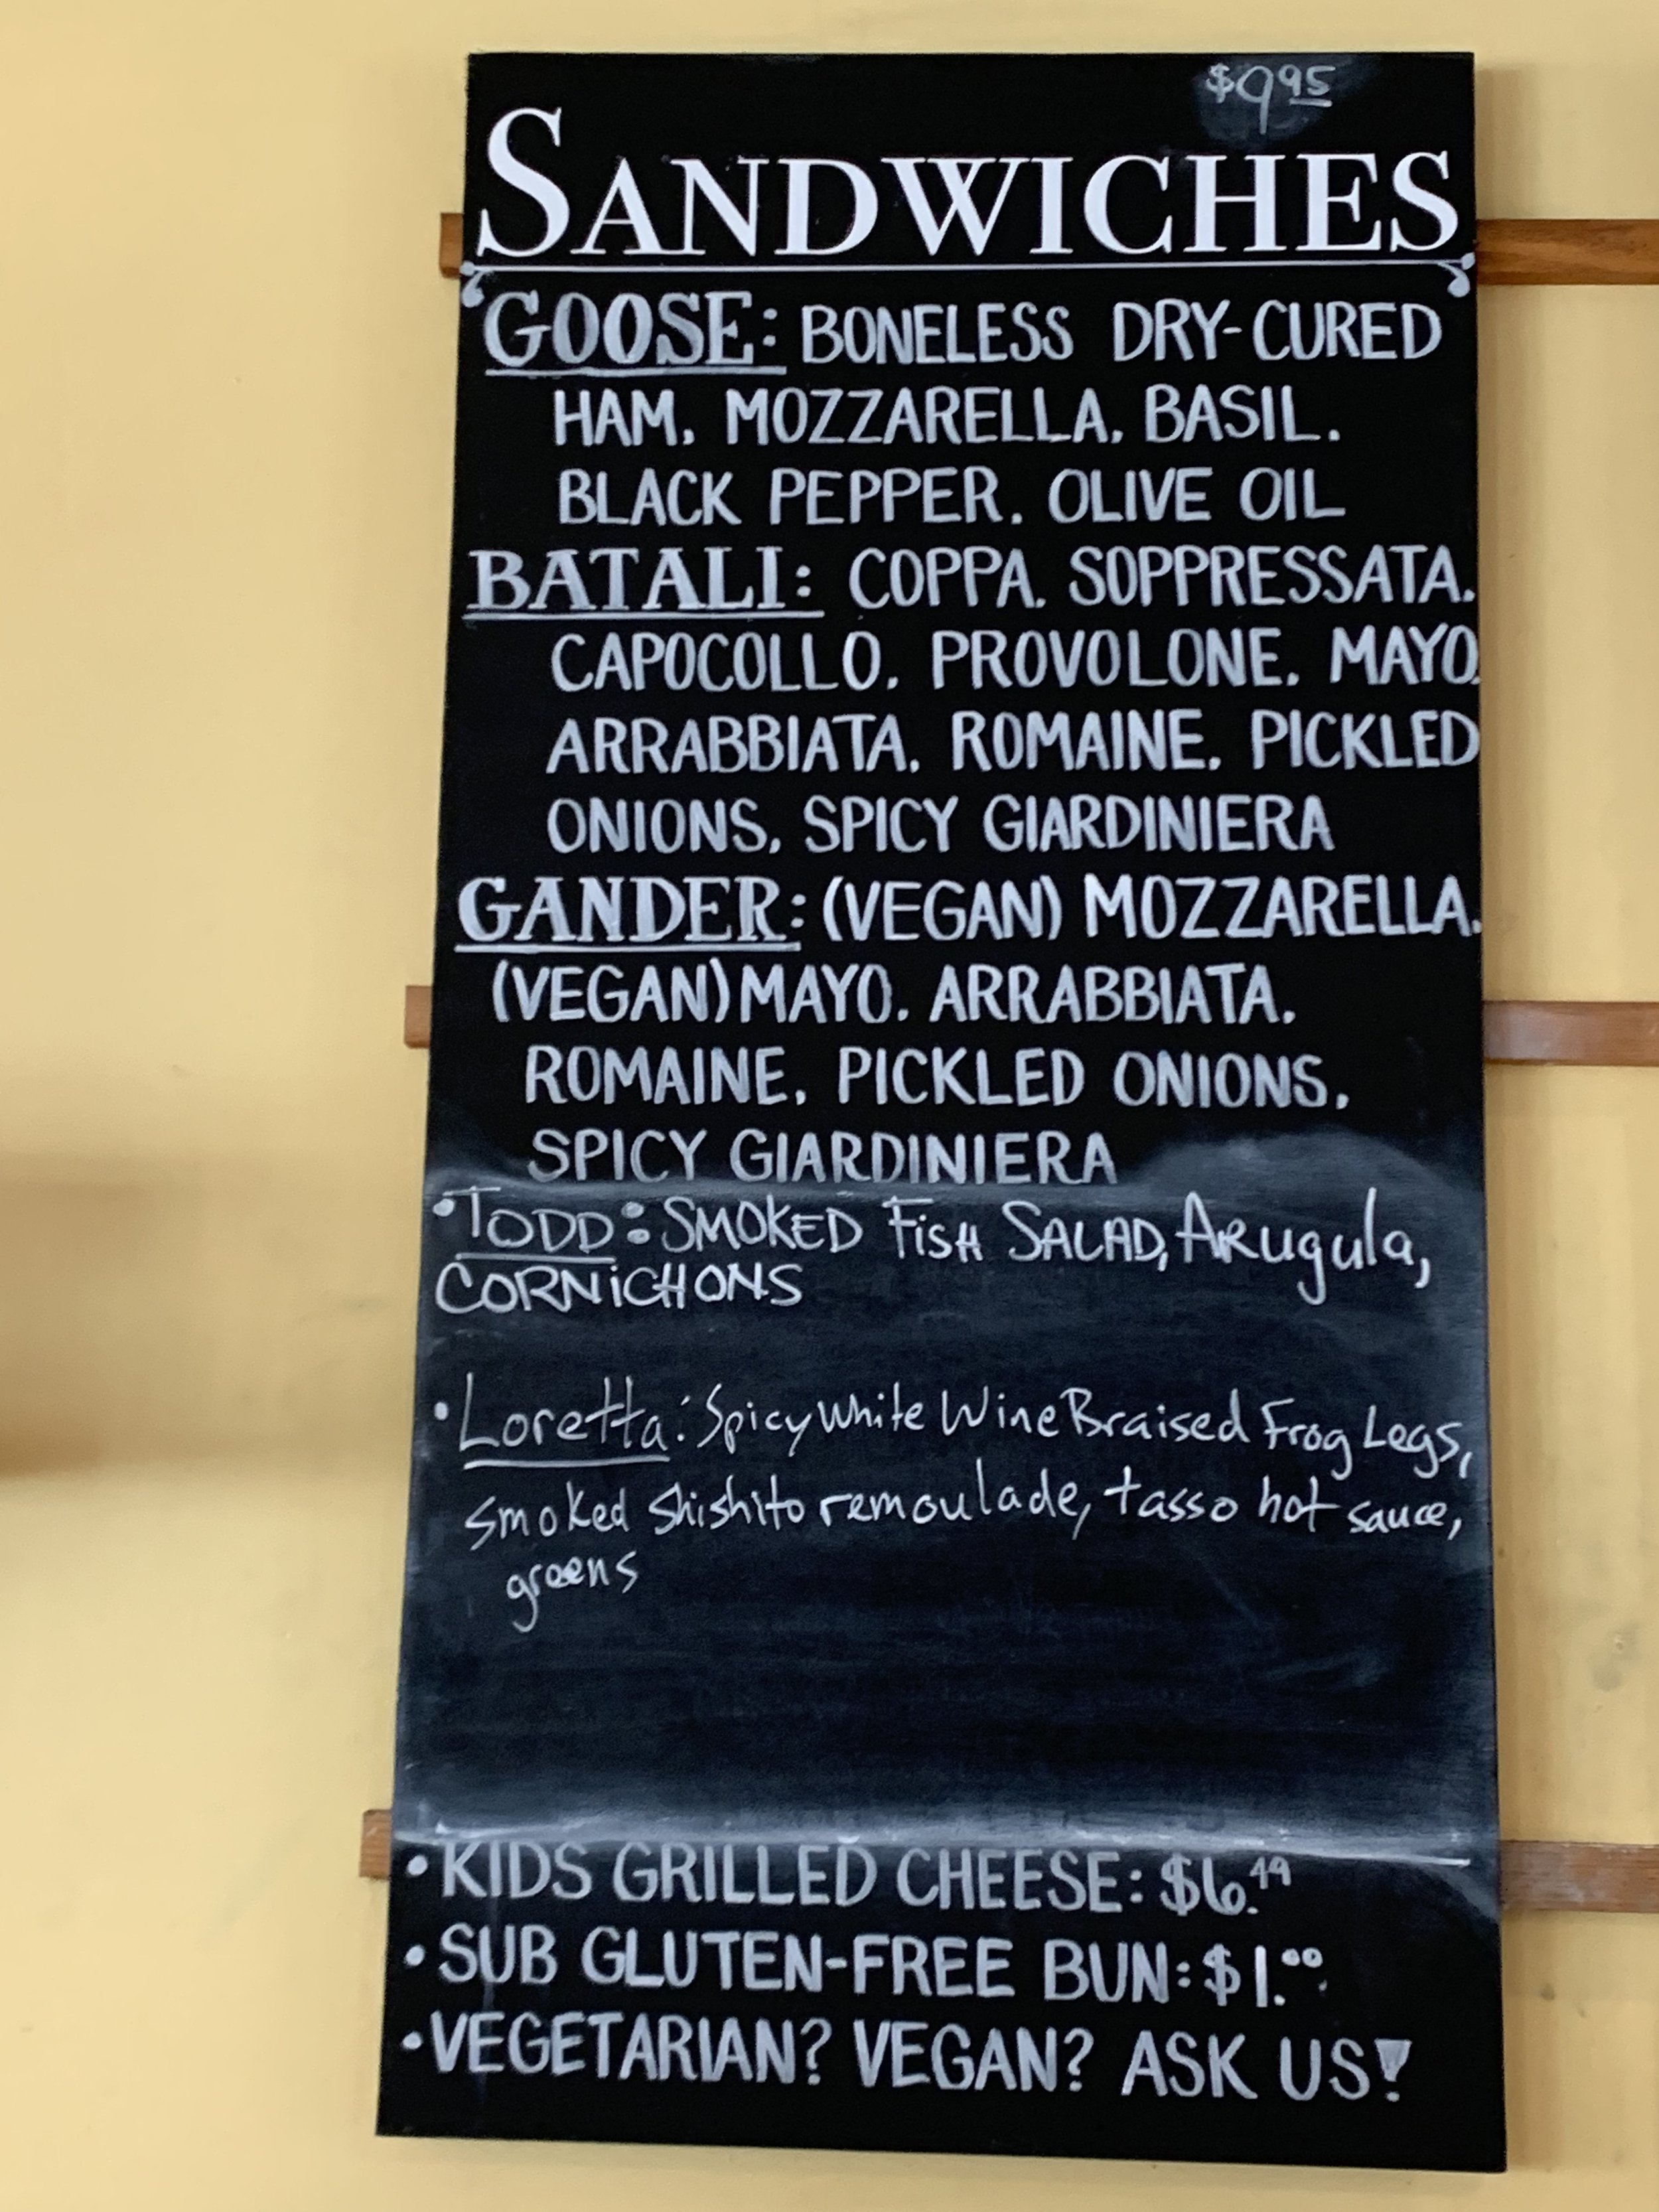 $9.95
SANDWICHES
GOOSE: BONELESS DRY-CURED
HAM. MOZZARELLA. BASIL.
BLACK PEPPER. OLIVE OIL
BATALI: COPPA. SOPPRESSATA.
CAPOCOLLO. PROVOLONE. MAYO.
ARRABBIATA. ROMAINE. PICKLED
ONIONS. SPICY GIARDINIERA
GANDER: (VEGAN) MOZZARELLA.
(VEGAN) MAYO. ARRABBIATA.
ROMAINE. PICKLED ONIONS.
SPICY GIARDINIERA
•TODD: SMOKED FiSH SALAD, ARugula,
CORNiCHONS
•Loretta: Spicy White Wine Braised Frog Legs,
smoked shishito remoulade, tasso hot sauce,
greens
•KIDS GRILLED CHEESE: $6.49
•SUB GLUTEN-FREE BUN: $1.00
•VEGETARIAN? VEGAN? ASK US!